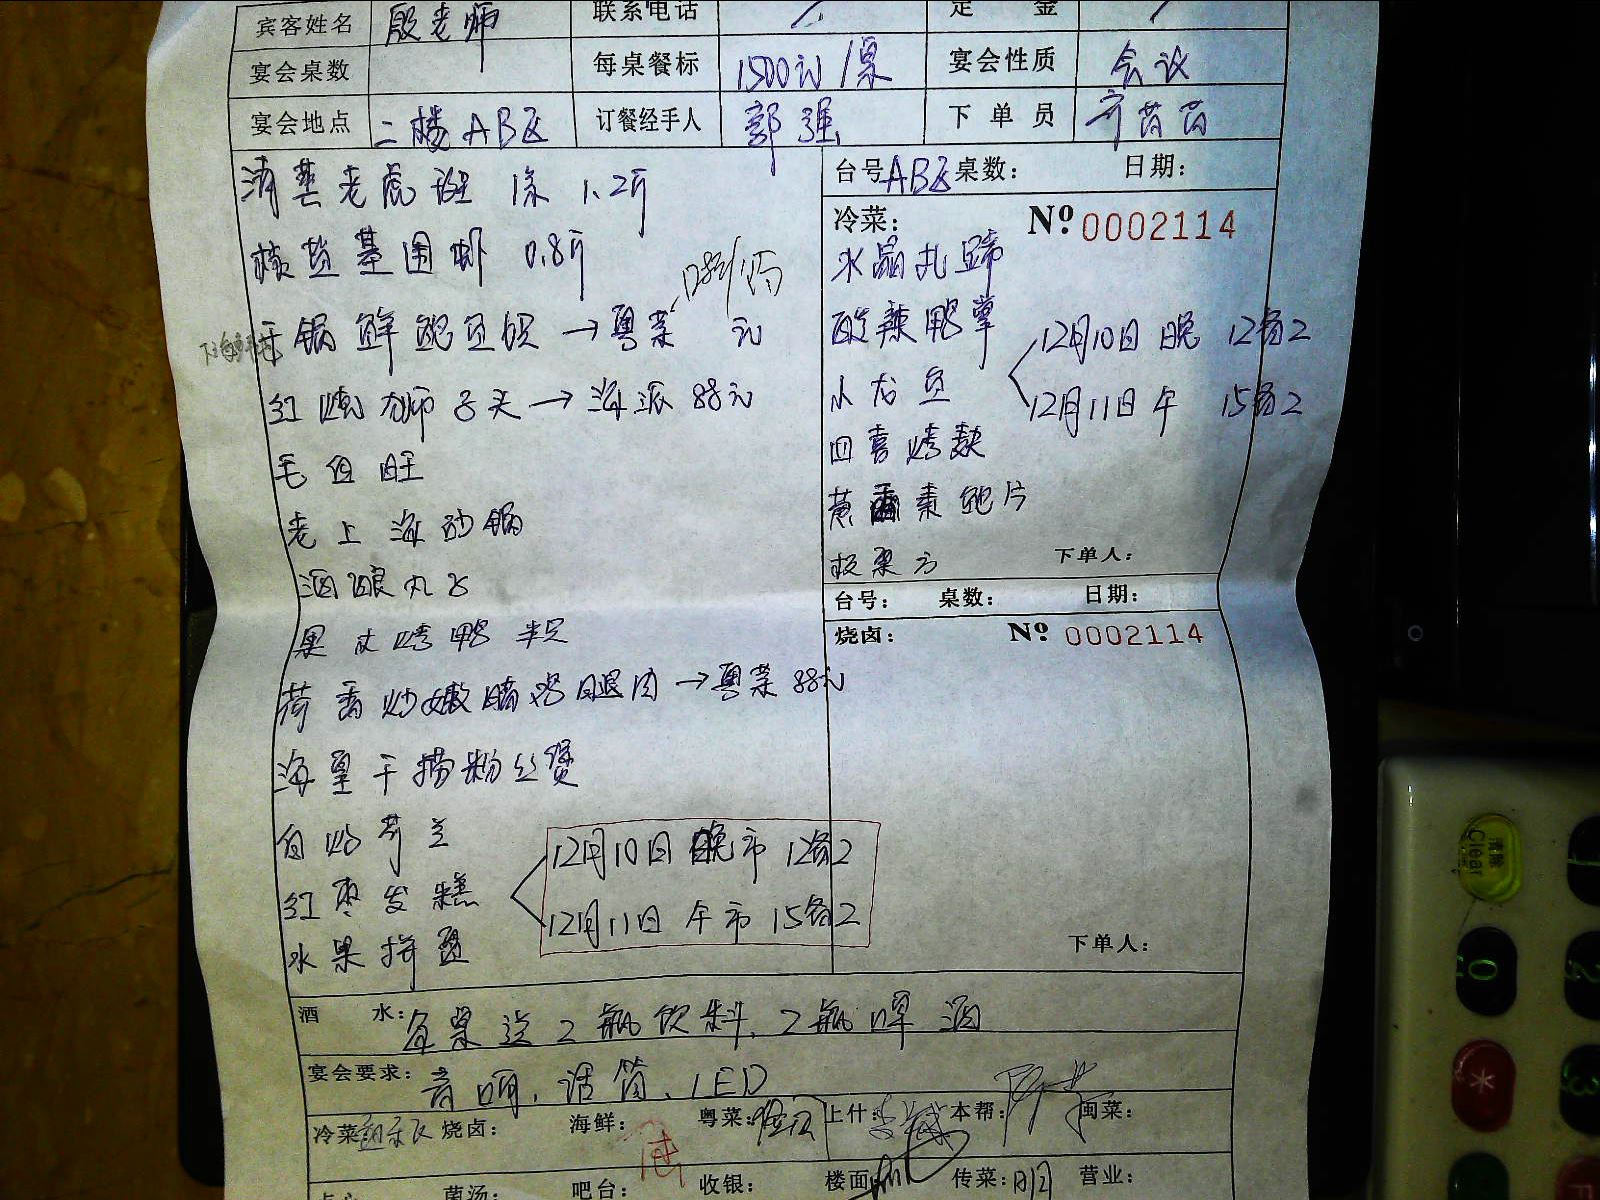 宾客姓名 殷老师 联系电话 / 定 金 /
宴会桌数 每桌餐标 1500元/桌 宴会性质 会议
宴会地点 二楼ABE 订餐经手人 郭强 下单员 齐茵茵
清蒸老虎斑 1条 1.2斤
椒盐基围虾 0.8斤
锅鲜鲍鱼 → 粤菜 元
红烧狮子头 → 海派 88元
毛血旺
老上海砂锅
酒酿丸子
果木烤鸭 半只
荷香炒嫩 鸡腿肉 → 粤菜 88元
海皇干捞粉丝煲
白灼芥兰
红枣发糕
12月10日 晚市 12备2
12月11日 午市 15备2
水果拼盘
台号: ABE 桌数: 日期:
冷菜: Nº 0002114
水晶扎蹄
酸辣鸭掌
小龙鱼
四喜烤麸
12月10日 晚 12备2
12月11日 午 15备2
素鲍片
下单人:
台号: 桌数: 日期:
烧卤: Nº 0002114
下单人:
酒 水: 每桌送2瓶饮料、2瓶啤酒
宴会要求: 音响、话筒、LED
冷菜 烧卤: 海鲜: 粤菜: 上什: 本帮: 闽菜:
菌汤: 吧台: 收银: 楼面 传菜: 营业: